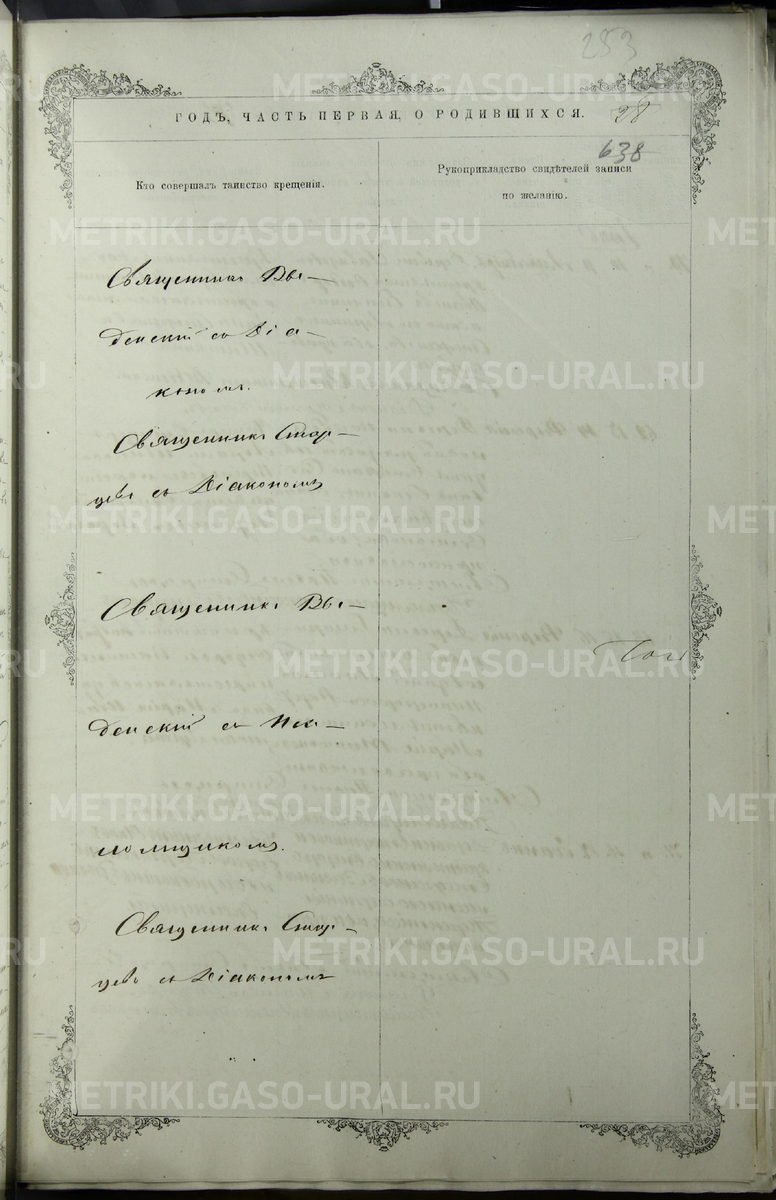 253
ГОДЪ, ЧАСТЬ ПЕРВАЯ, О РОДИВШИХСЯ.
638
Кто совершалъ таинство крещенія.
Рукоприкладство свидѣтелей записи
по желанію.
Священникъ Вве-
денскій съ Діа-
кономъ.
Священникъ Стар-
цевъ съ Діакономъ
Священникъ Вве-
денскій съ Пса-
ломщикомъ.
Священникъ Стар-
цевъ съ Діакономъ
METRIKI.GASO-URAL.RU